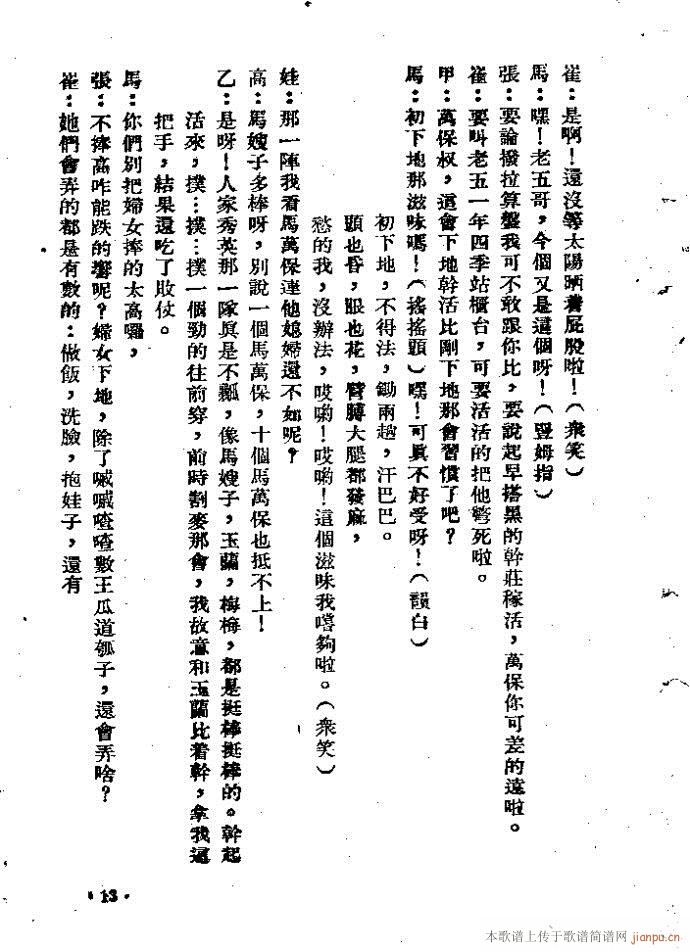 崔：是啊！還沒等太陽晒着屁股啦！（衆笑）
馬：嘿！老五哥，今個又是這個呀！（豎姆指）
張：要論撥拉算盤我可不敢跟你比，要說起早搭黑的幹莊稼活，萬保你可差的遠啦。
崔：要叫老五一年四季站櫃台，可要活活的把他彆死啦。
甲：萬保叔，這會下地幹活比剛下地那會習慣了吧？
馬：初下地那滋味嗎！（搖搖頭）嘿！可眞不好受呀！（韻白）
初下地，不得法，鋤兩趟，汗巴巴。
頭也昏，眼也花，臂膊大腿都發麻，
愁的我，沒辦法，哎喲！哎喲！這個滋味我嚐夠啦。（衆笑）
娃：那一陣我看馬萬保連他媳婦還不如呢？
高：馬嫂子多棒呀，別說一個馬萬保，十個馬萬保也抵不上！
乙：是呀！人家秀英那一隊眞是不瓤，像馬嫂子，玉蘭，梅梅，都是挺棒挺棒的。幹起
活來，撲…撲…撲一個勁的往前穿，前時割麥那會，我故意和玉蘭比着幹，拿我這
把手，結果還吃了敗仗。
馬：你們別把婦女捧的太高囉，
張：不捧高咋能跌的響呢？婦女下地，除了嘁嘁喳喳數王瓜道瓠子，還會弄啥？
崔：她們會弄的都是有數的：做飯，洗臉，抱娃子，還有
·13·
本歌谱上传于歌谱简谱网 jianpu.cn